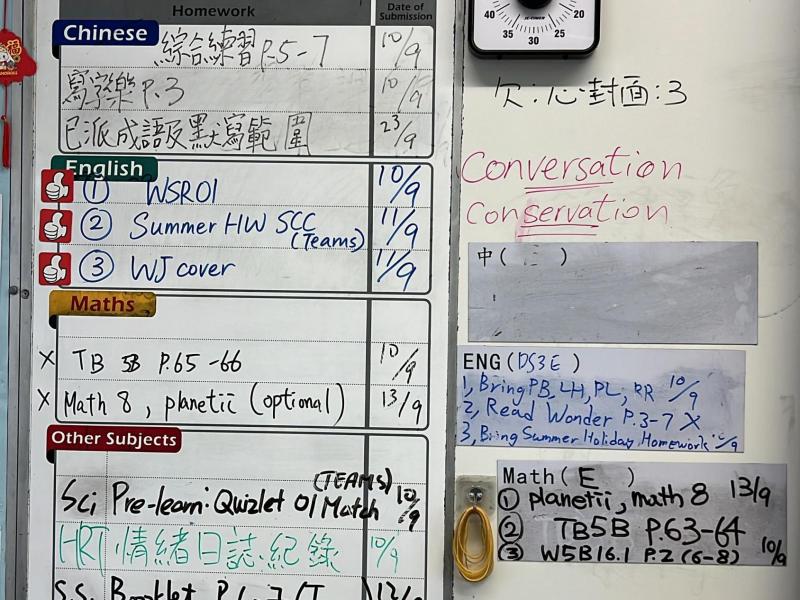 Homework
Date of Submission
Chinese
綜合練習 P.5-7 10/9
寫字樂 P.3 10/9
已派成語及默寫範圍 23/9
English
① WSR01 10/9
② Summer HW SCC (Teams) 11/9
③ WJ cover 11/9
Maths
X TB 5B P.65-66 10/9
X Math 8, planetii (optional) 13/9
Other Subjects
Sci Pre-learn: Quizlet 01 Match (TEAMS) 10/9
HRT 情緒日誌紀錄 10/9
S.S. Booklet
40 20
35 30 25
欠:心封面:3
Conversation
Conservation
中( )
ENG (DS3E)
1, Bring PB, LH, PL, RR 10/9
2, Read Wonder P.3-7 X
3, Bring Summer Holiday Homework
Math (E)
① planetii, math 8 13/9
② TB5B P.63-64
③ W5B16.1 P.2 (6-8) 10/9